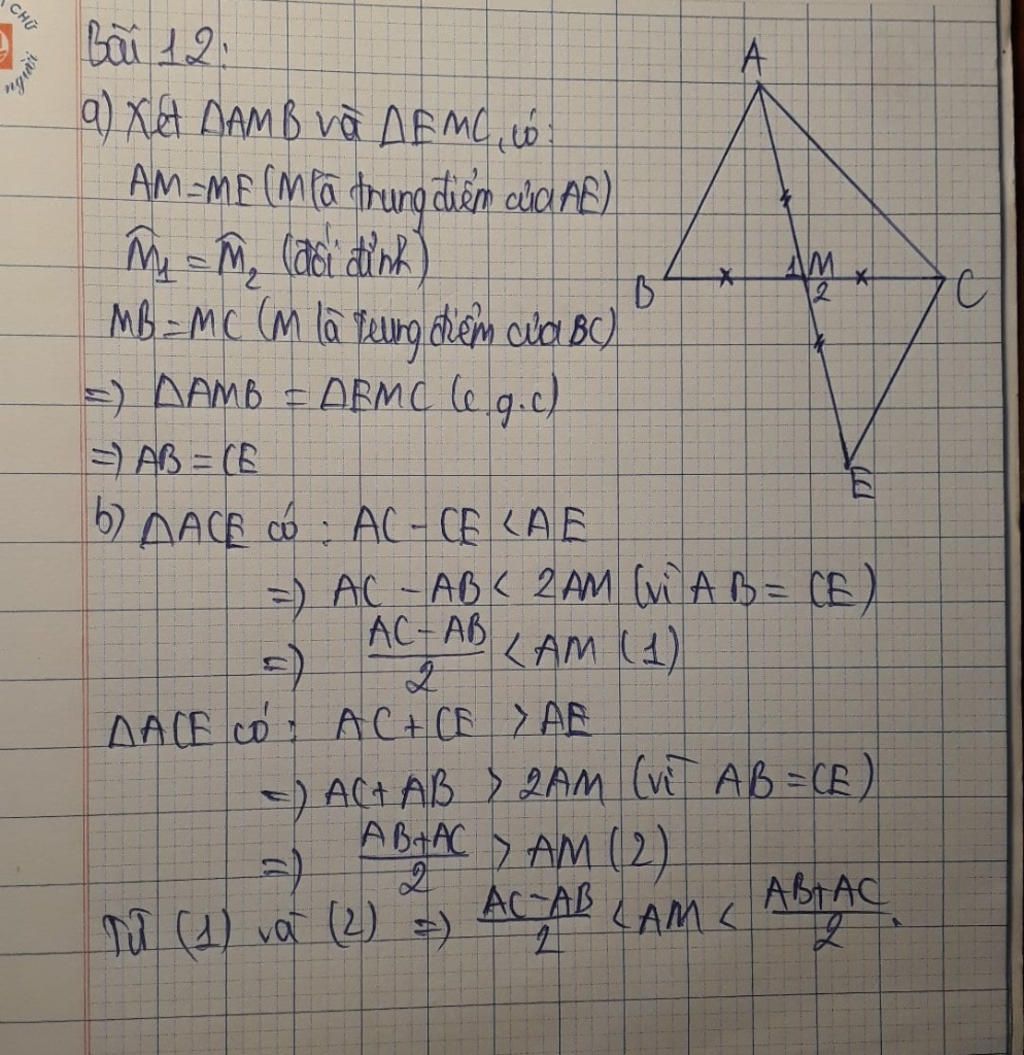 CHỮ
người
Bài 12:
a) Xét ΔAMB và ΔEMC, có:
AM = ME (M là trung điểm của AE)
M̂₁ = M̂₂ (đối đỉnh)
MB = MC (M là trung điểm của BC)
=) ΔAMB = ΔEMC (c.g.c)
=) AB = CE
b) ΔACE có : AC - CE < AE
=) AC - AB < 2AM (vì AB = CE)
=) (AC - AB)/2 < AM (1)
ΔACE có : AC + CE > AE
=) AC + AB > 2AM (vì AB = CE)
=) (AB + AC)/2 > AM (2)
Từ (1) và (2) =) (AC - AB)/2 < AM < (AB + AC)/2 .
A
B 1 M C
2
E